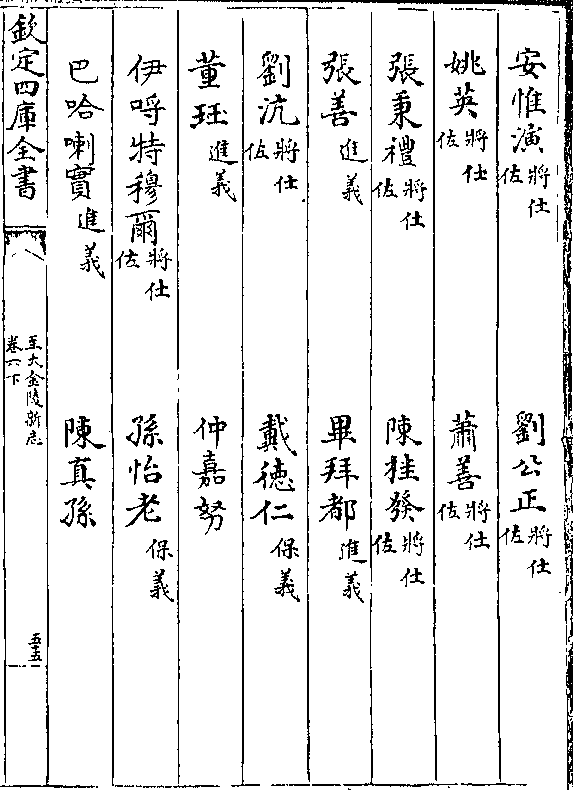 安惟演將仕佐　劉公正將仕佐
姚英將仕佐　蕭善將仕佐
張秉禮將仕佐　陳桂發將仕佐
張善進義　畢拜都進義
劉沆將仕佐　戴德仁保義
董珏進義　仲嘉努
伊哷特穆爾將仕佐　孫怡老保義
巴哈喇實進義　陳真孫
欽定四庫全書
至大金陵新志
卷六下
五十五